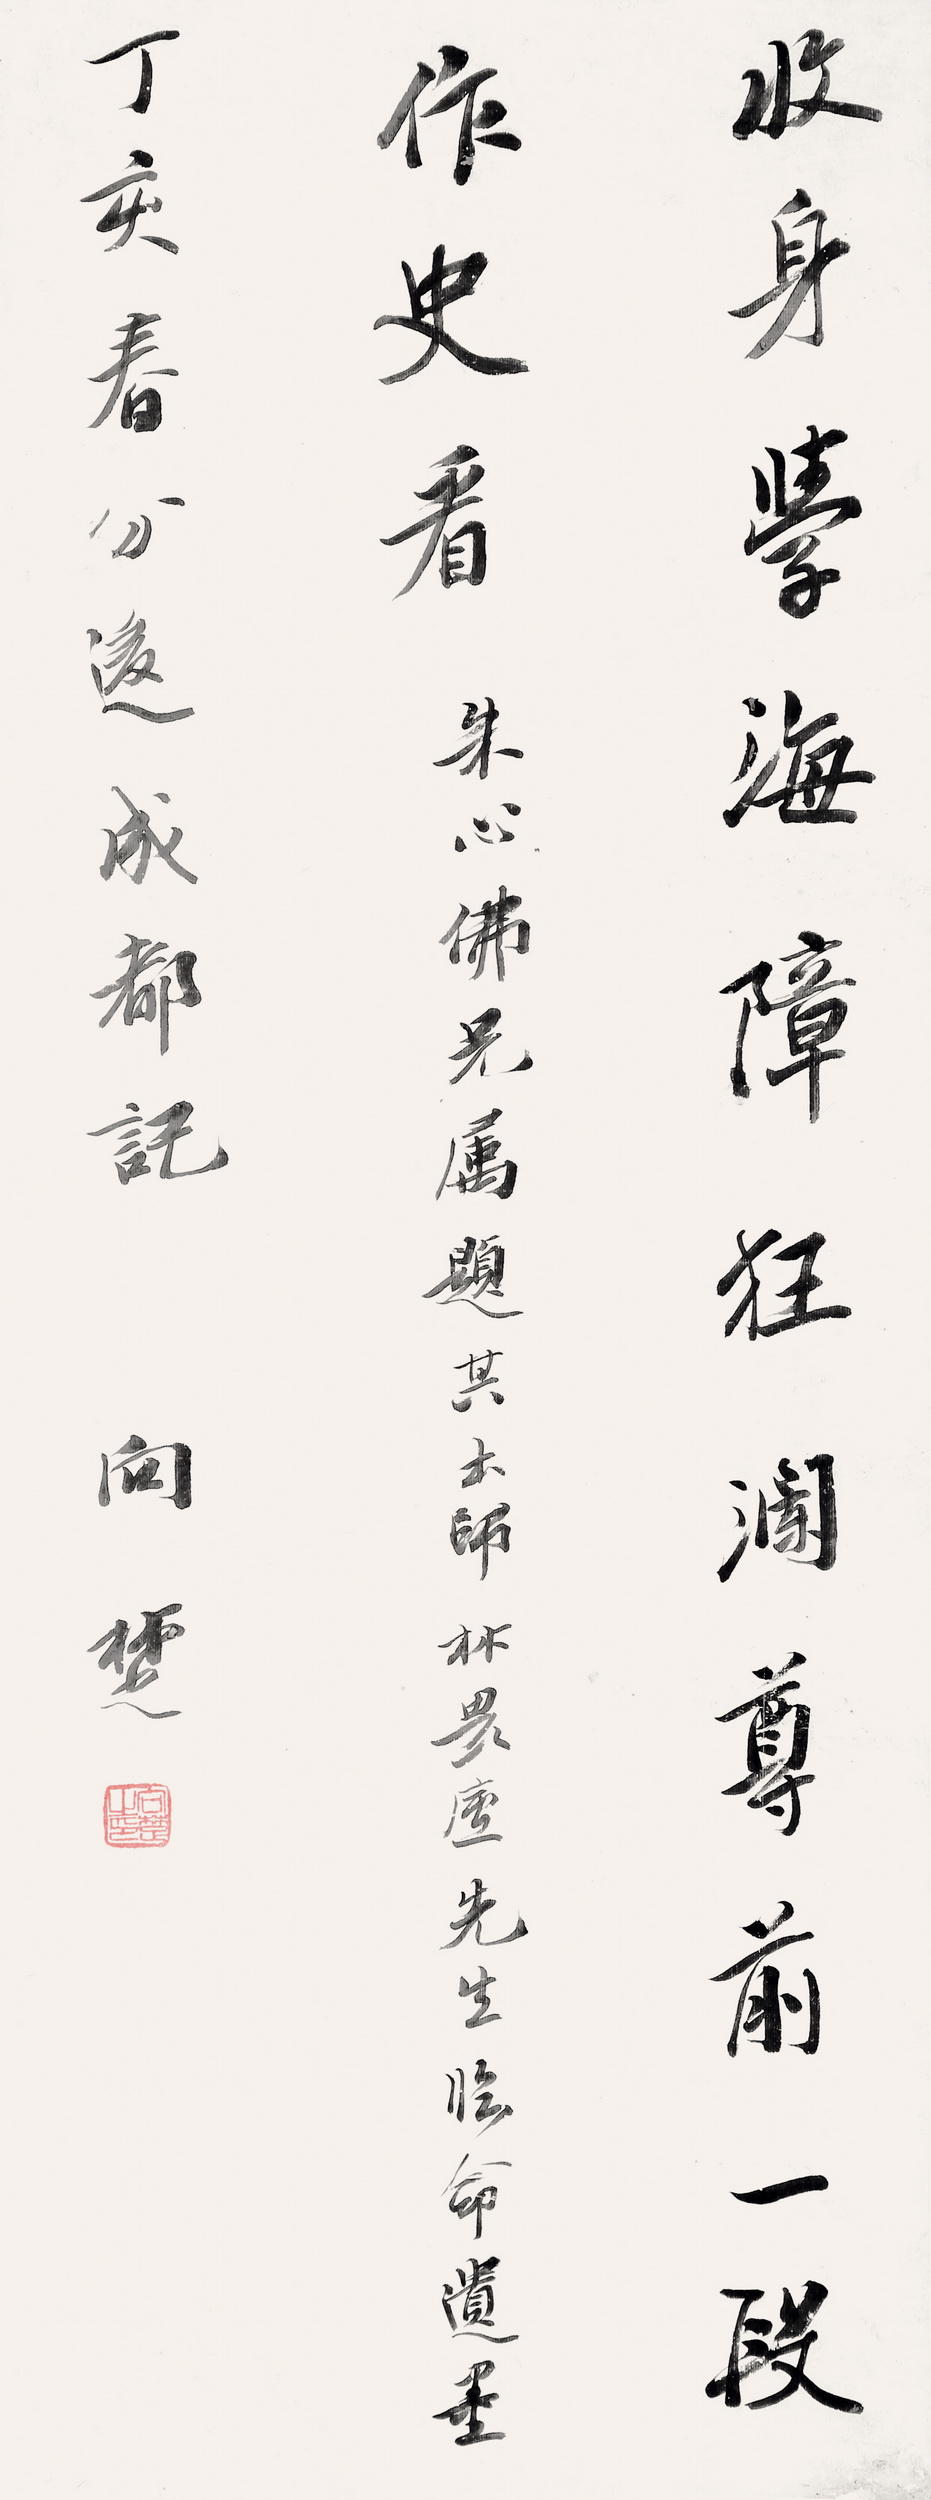 收身學海障狂瀾尊前一段
作史看 朱心佛兄属題其本師林畏廬先生臨命遺墨
丁亥春分後成都記 向楚
向楚之印